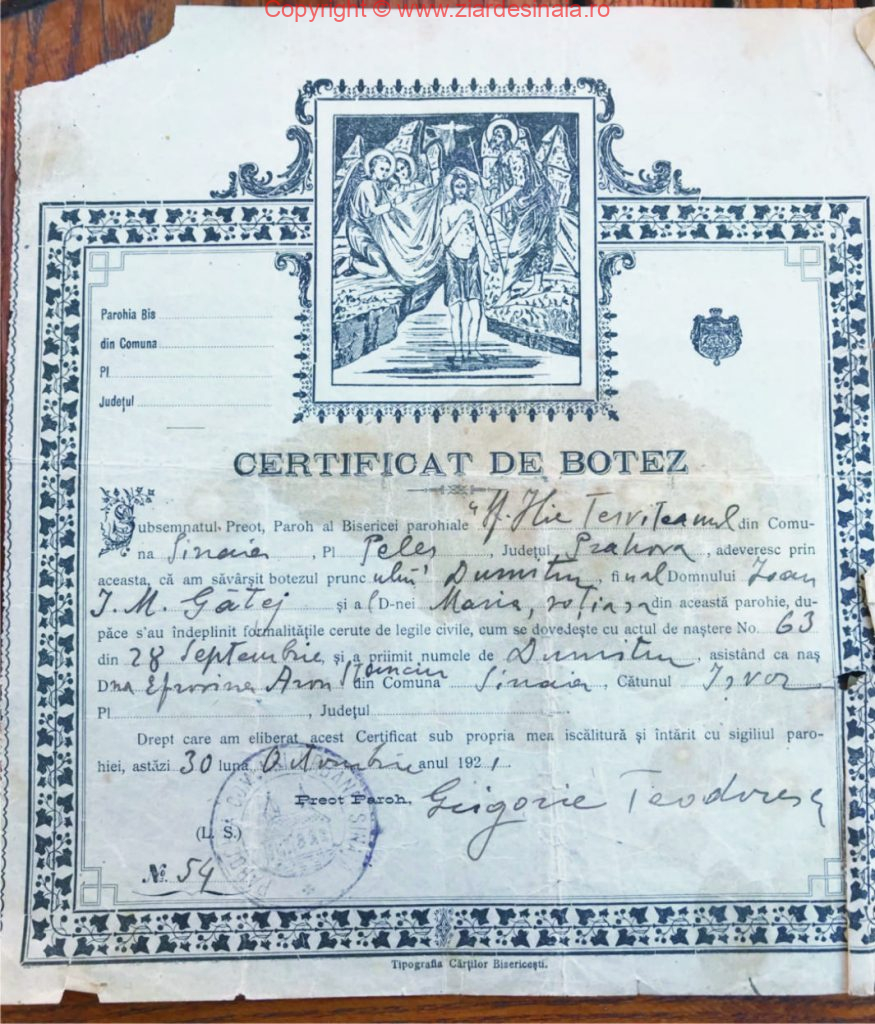 Copyright © www.ziardesinaia.ro
Parohia Bis
din Comuna
Pl.
Județul
CERTIFICAT DE BOTEZ
Subsemnatul Preot, Paroh al Bisericei parohiale "Sf. Ilie Tesviteanul din Comu-
na Sinaia, Pl Peleș, Județul Prahova, adeveresc prin
aceasta, că am săvârșit botezul pruncului Dumitru, finul Domnului Ioan
I. M. Gâtej și al D-nei Maria, soțiasa din această parohie, du-
păce s'au îndeplinit formalitățile cerute de legile civile, cum se dovedește cu actul de naștere No. 63
din 28 Septembrie și a priimit numele de Dumitru, asistând ca naș
Dna Efrosina Aron Stanciu din Comuna Sinaia, Cătunul Isvor
Pl., Județul
Drept care am eliberat acest Certificat sub propria mea iscălitură și întărit cu sigiliul paro-
hiei, astăzi 30 luna Octombrie anul 1921.
Preot Paroh, Grigorie Teodorescu
(L. S.)
No. 54
Tipografia Cărților Bisericești.